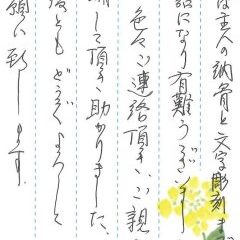 は主人の納骨と文字彫刻まで
話になり有難うございま
色々ご連絡頂き、ご親
備して頂き助かりました、
後ともどうぞよろしく
願い致します。